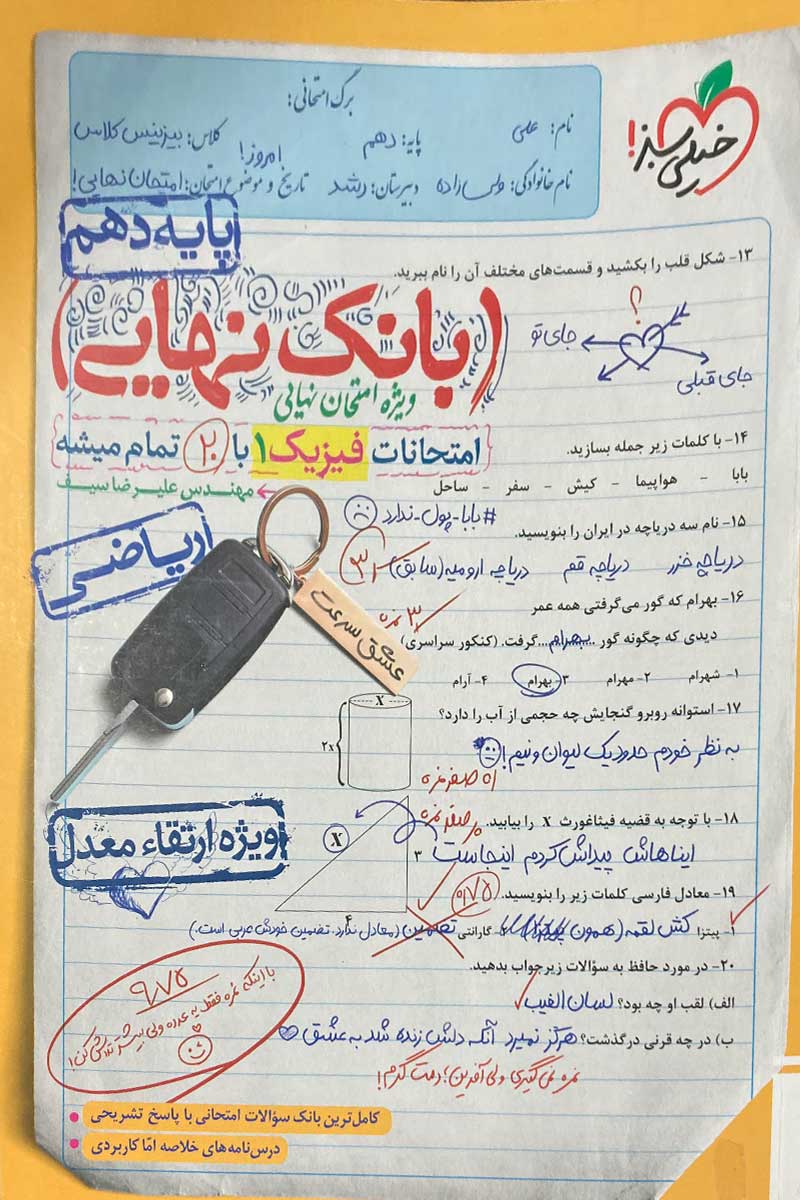 برگ امتحانی:
نام: علی
پایه: دهم
کلاس: بیزینس کلاس
نام خانوادگی: ولی زاده
دبیرستان: رشد
تاریخ و موضوع امتحان: امروز! امتحان نهایی!
خیلی سبز!
پایه دهم
۱۳- شکل قلب را بکشید و قسمت‌های مختلف آن را نام ببرید.
؟
جای تو
جای قبلی
(بانک نهایی)
ویژه امتحان نهایی
امتحانات فیزیک ۱ با ۲۰ تمام میشه
مهندس علیرضا سیف
۱۴- با کلمات زیر جمله بسازید.
بابا - هواپیما - کیش - سفر - ساحل
#بابا-پول-ندارد
۱۵- نام سه دریاچه در ایران را بنویسید.
دریاچه خزر دریاچه قم دریاچه ارومیه (سابق)
ریاضی
۱۶- بهرام که گور می‌گرفتی همه عمر
۳ نمره
دیدی که چگونه گور ...بهرام... گرفت. (کنکور سراسری)
۱- شهرام ۲- مهرام ۳- بهرام ۴- آرام
عشق سرعت
۱۷- استوانه روبرو گنجایش چه حجمی از آب را دارد؟
X
2x
به نظر خودم حدود یک لیوان و نیم!
صفر نمره
۱۸- با توجه به قضیه فیثاغورث X را بیابید.
صفر نمره
X
۳
۴
ایناهاش پیداش کردم اینجاست
ویژه ارتقاء معدل
۱۹- معادل فارسی کلمات زیر را بنویسید.
۰/۷۵
۱- پیتزا کش لقمه (همون گارانتی تضمین (معادل ندارد. تضمین خودش عربی است.)
۲۰- در مورد حافظ به سؤالات زیر جواب بدهید.
الف) لقب او چه بود؟ لسان الغیب
ب) در چه قرنی درگذشت؟ هرگز نمیرد آنکه دلش زنده شد به عشق
نمره نمی‌گیری ولی آفرین؛ دمت گرم!
۹/۷۵
با اینکه نمره فقط یه عدده ولی بیشتر تلاش کن!
کامل‌ترین بانک سؤالات امتحانی با پاسخ تشریحی
درس‌نامه‌های خلاصه امّا کاربردی